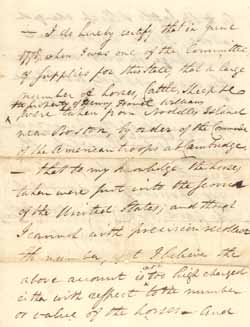 — I do hereby certify that in June
1775 when I was one of the Committee
of supplies for this State that a large
number of horses, Cattle, Sheep &c
the property of Henry Howell Williams
were taken from Noddles Island
near Boston, by order of the Comman
of the American troops at Cambridge
— that to my knowledge the horses
taken were put into the service
of the United States; and though
I cannot with precision recollect
the number, yet I believe the
above account is not too high charged
either with respect to the number
or value of the horses — And